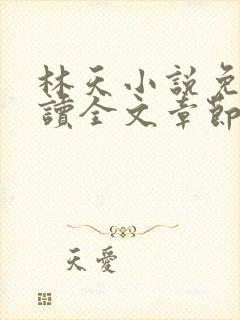 林天小說免
讀全文章節
天愛